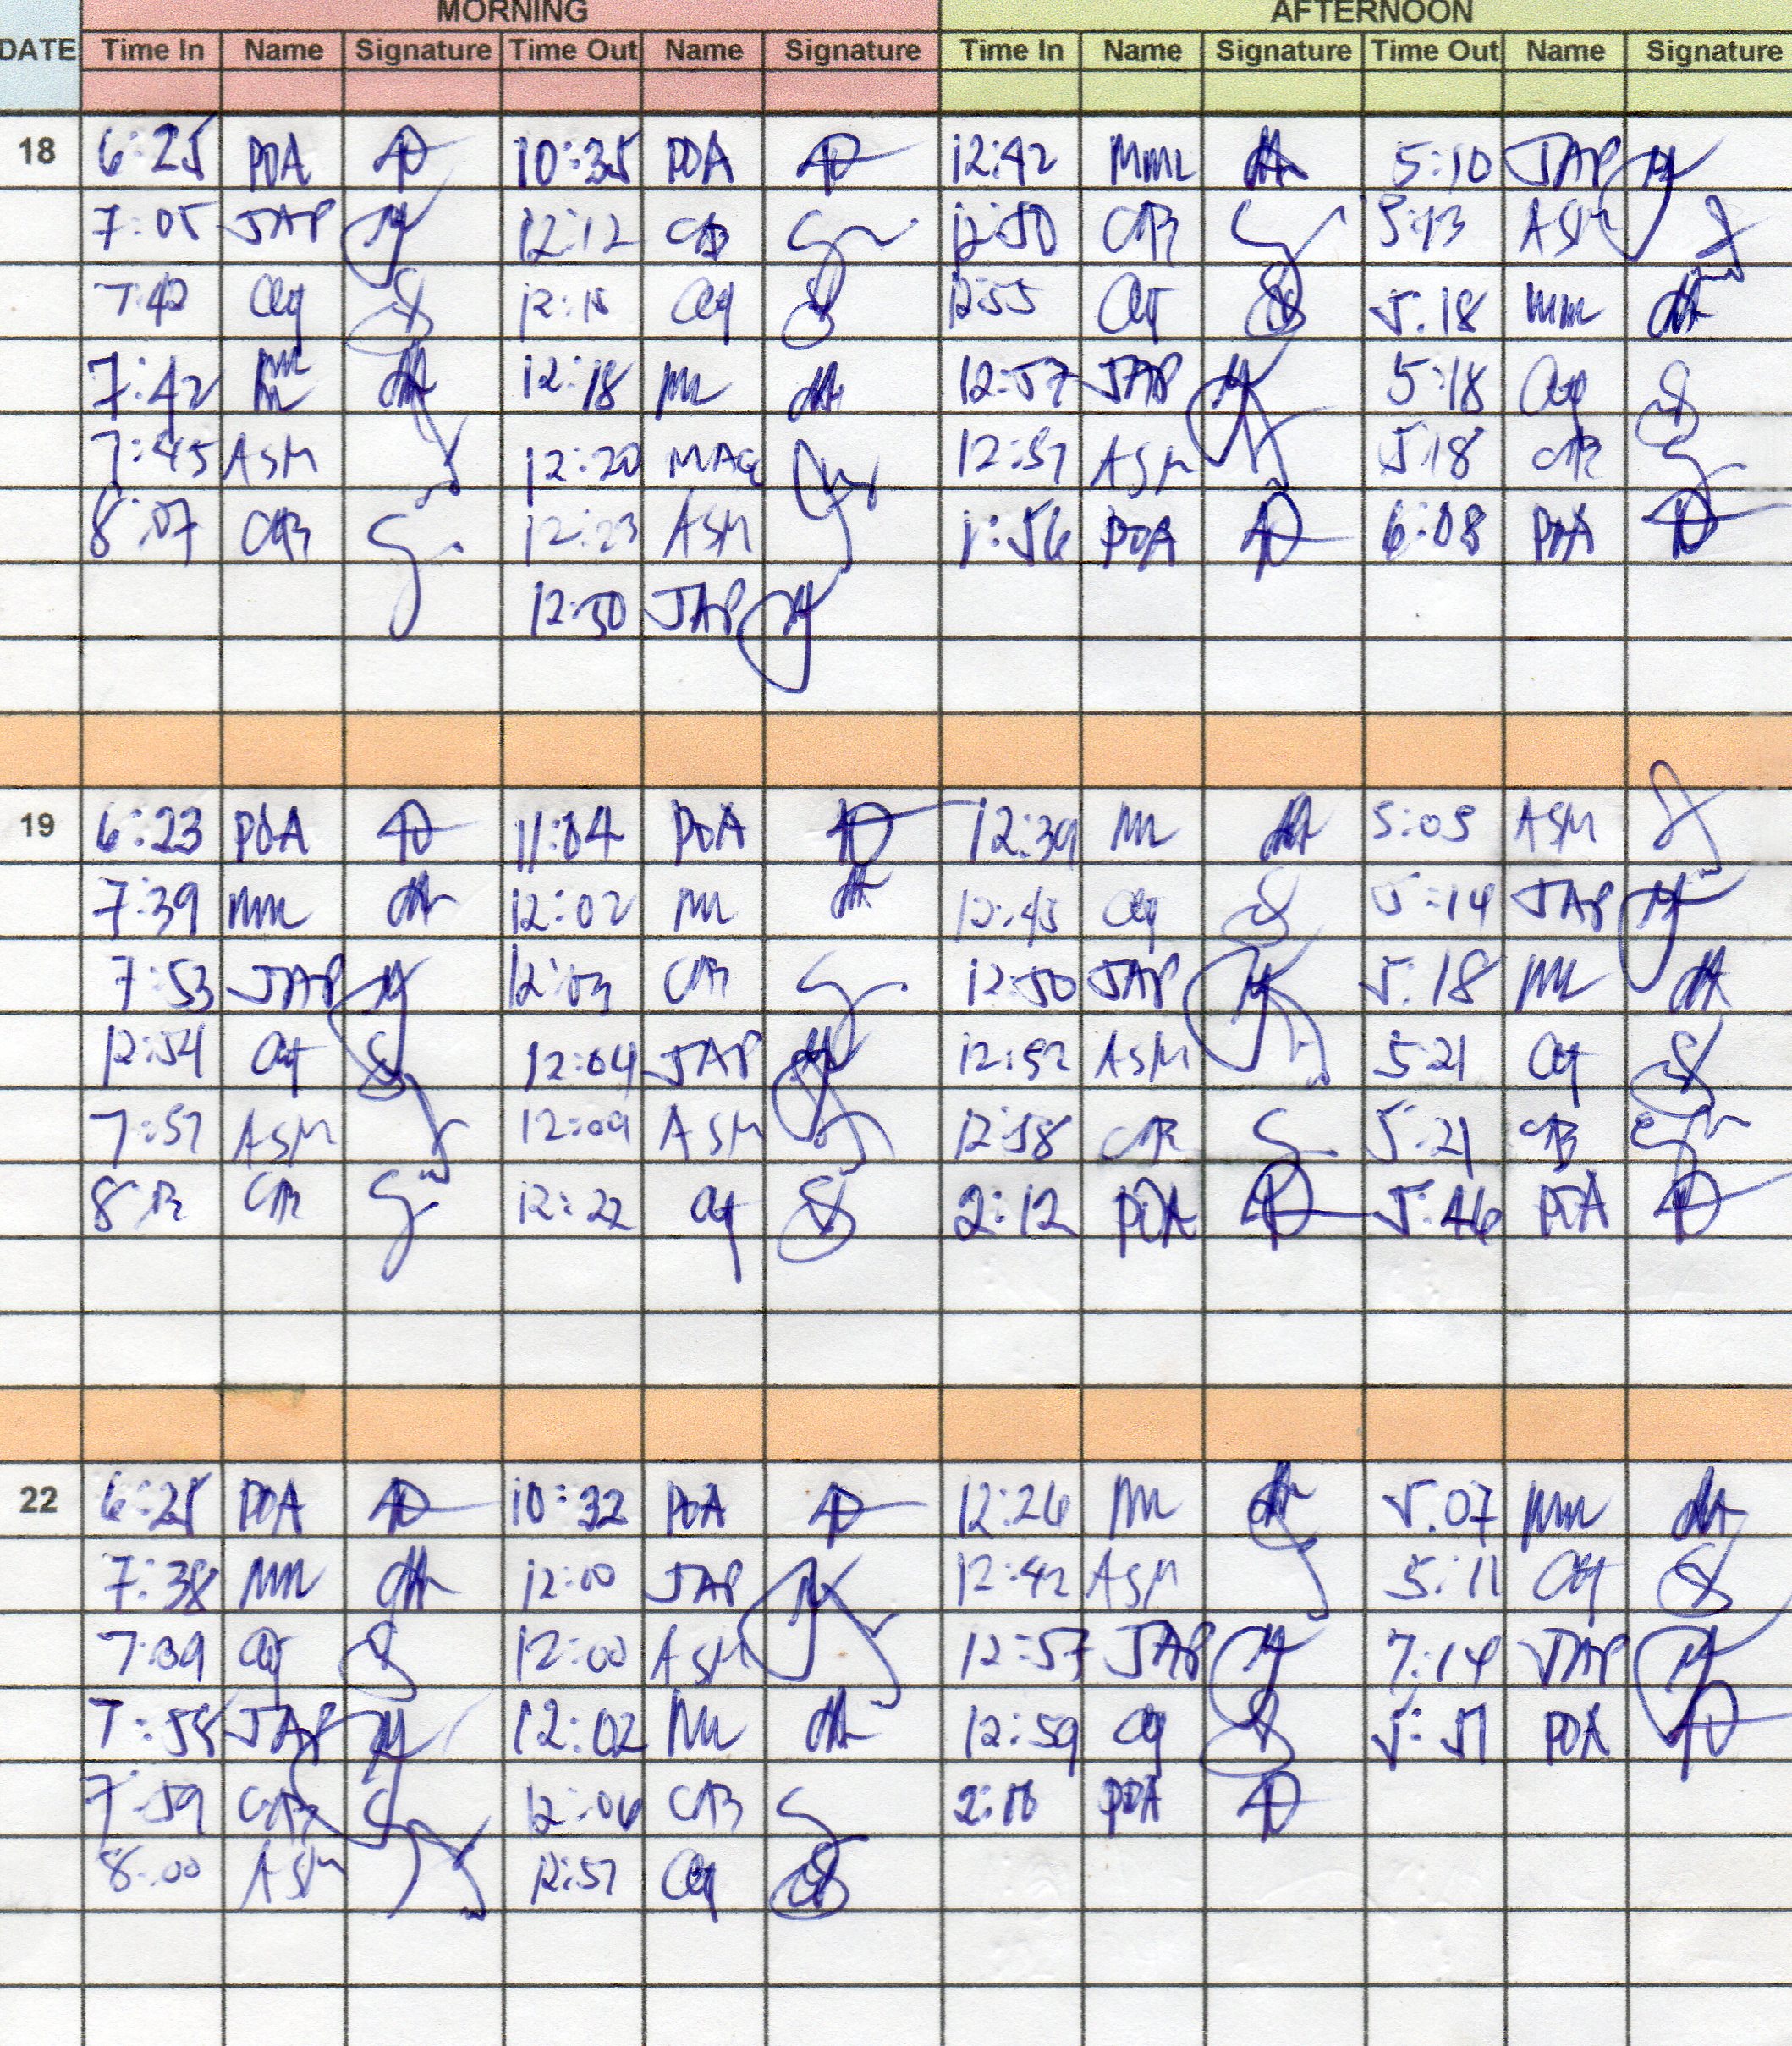 MORNING AFTERNOON
DATE Time In Name Signature Time Out Name Signature Time In Name Signature Time Out Name Signature
18 6:25 PDA 10:35 PDA 12:42 MML 5:10 JAP
7:05 JAP 12:12 CAB 12:50 CAB 5:13 ASM
7:42 12:15 12:55 5:18 MML
7:42 MML 12:18 ML 12:57 JAP 5:18
7:45 ASM 12:20 MAG 12:57 ASM 5:18 CAB
8:07 CAB 12:23 ASM 1:56 PDA 6:08 PDA
12:30 JAP
19 6:23 PDA 11:04 PDA 12:39 ML 5:05 ASM
7:39 MML 12:02 ML 12:45 5:14 JAP
7:53 JAP 12:03 CAB 12:50 JAP 5:18 ML
12:54 12:04 JAP 12:52 ASM 5:21
7:57 ASM 12:09 ASM 12:58 CAB 5:21 CAB
CAB 12:22 2:12 PDA 5:46 PDA
22 6:25 PDA 10:32 PDA 12:26 ML 5:07 MML
7:38 MML 12:00 JAP 12:42 ASM 5:11
7:39 12:00 ASM 12:57 JAP 7:14 JAP
7:55 JAP 12:02 ML 12:59 5:51 PDA
7:59 CAB 12:06 CAB PDA
8:00 ASM 12:57